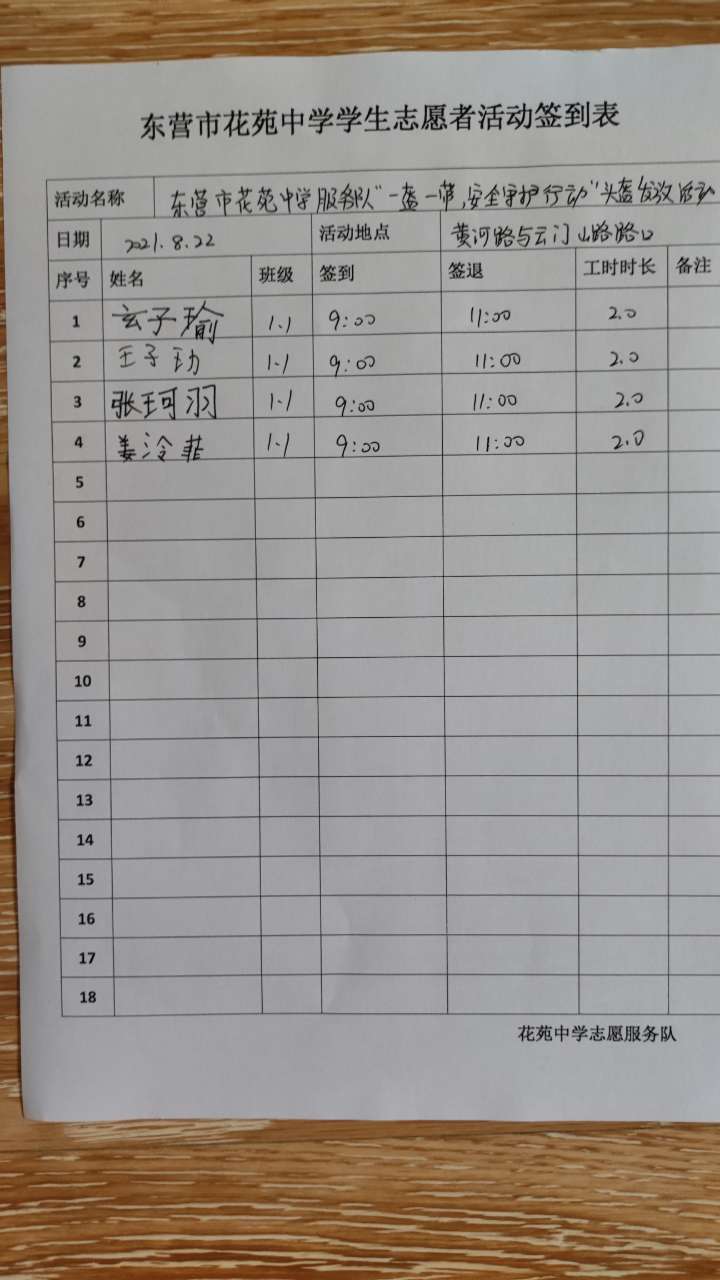 东营市花苑中学学生志愿者活动签到表
活动名称 东营市花苑中学服务队"一盔一带,安全守护行动"头盔发放活动
日期 2021.8.22 活动地点 黄河路与云门山路路口
序号 姓名 班级 签到 签退 工时时长 备注
1 玄子瑜 1.1 9:00 11:00 2.0
2 王子玏 1.1 9:00 11:00 2.0
3 张珂羽 1.1 9:00 11:00 2.0
4 姜泠菲 1.1 9:00 11:00 2.0
5
6
7
8
9
10
11
12
13
14
15
16
17
18
花苑中学志愿服务队